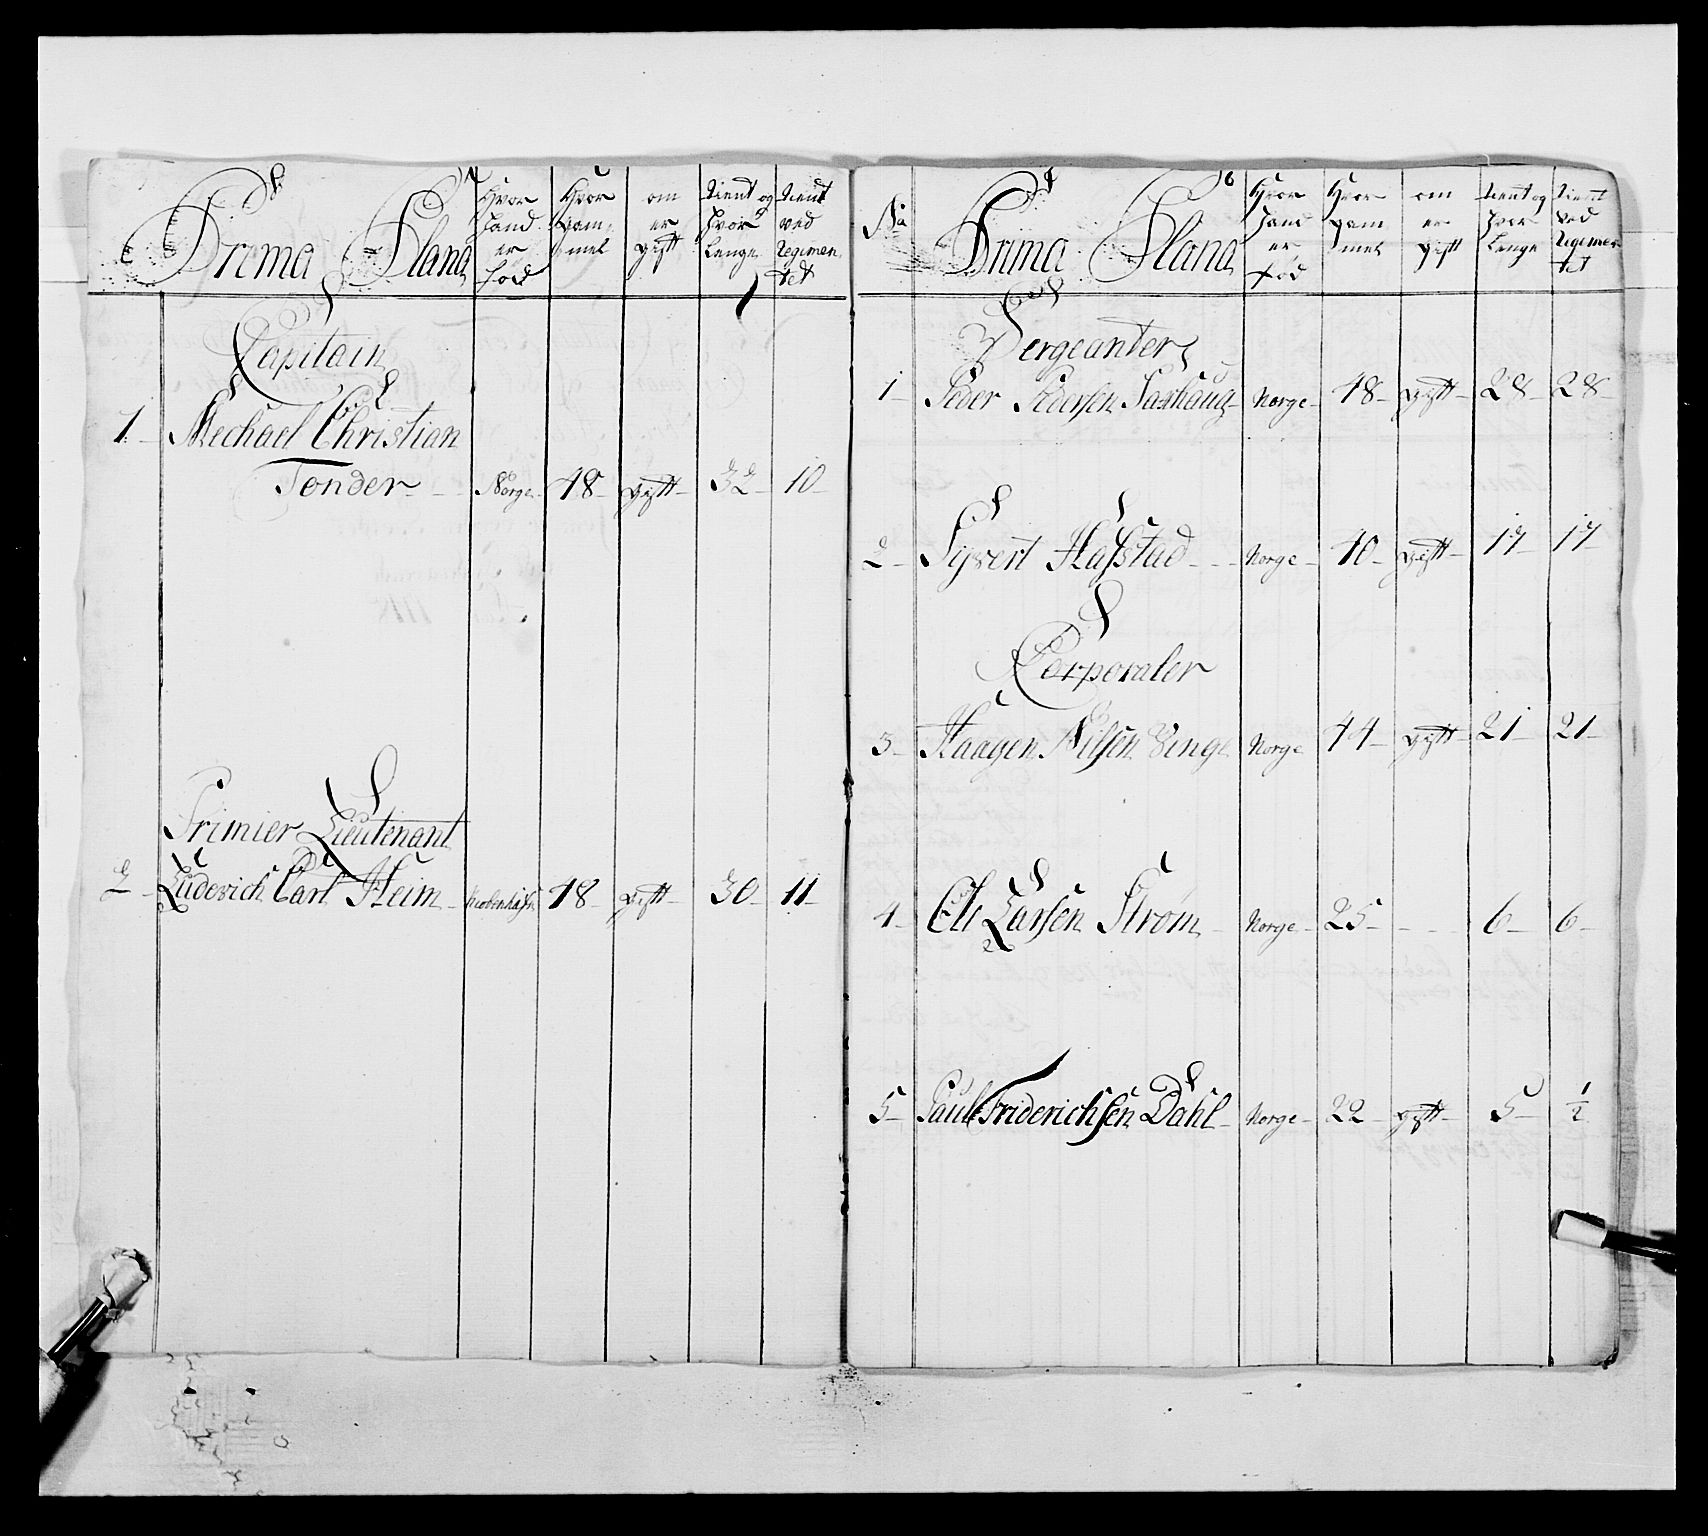 Prima Plana
Hvor hand er fød
Hvor gammel
om er gift
tient og hvor Lenge
tient ved Regimentet
Capitain
1 Mechael Christian
Tonder Norge 48 gift 32 10
Primier Lieutenant
2 Luderich Carl Heim Kiøbenhafn 48 gift 30 11
No
Prima Plana
Hvor hand er fød
Hvor gammel
om er gift
tient og hvor Lenge
tient ved Regimentet
Sergeanter
1 Peder Pedersen Saxhaug Norge 48 gift 28 28
2 Syvert Hafstad Norge 40 gift 17 17
Corporaler
3 Haagen Nilsen Vinge Norge 44 gift 21 21
4 Ole Larsen Strøm Norge 25 6 6
5 Paul Friderichsen Dahl Norge 22 gift 5 1/2